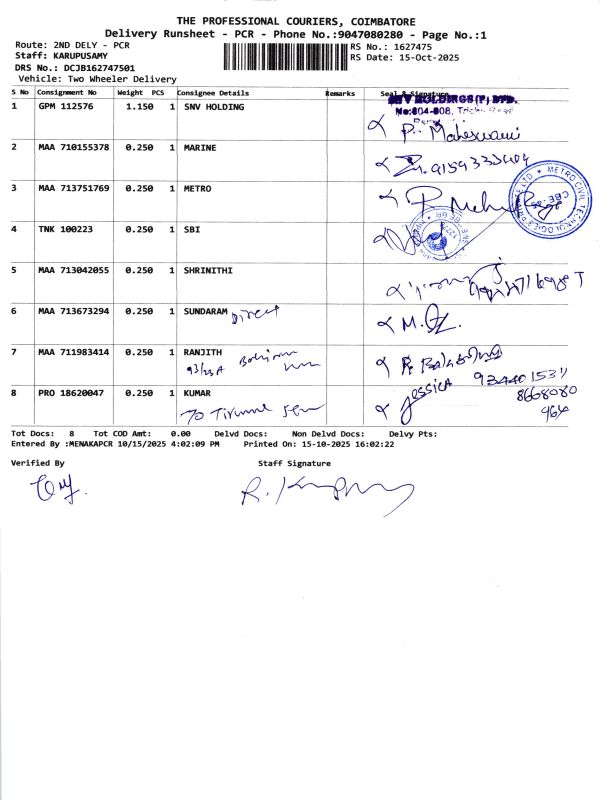 THE PROFESSIONAL COURIERS, COIMBATORE
Delivery Runsheet - PCR - Phone No.:9047080280 - Page No.:1
Route: 2ND DELY - PCR
RS No.: 1627475
Staff: KARUPUSAMY
RS Date: 15-Oct-2025
DRS No.: DCJB162747501
Vehicle: Two Wheeler Delivery
S No Consignment No Weight PCS Consignee Details Remarks Seal & Signature
1 GPM 112576 1.150 1 SNV HOLDING
SNV HOLDINGS (P) LTD.
No:804-808, Trichy Road
P. Maheswari
2 MAA 710155378 0.250 1 MARINE
3 MAA 713751769 0.250 1 METRO
METRO CIVIL TECHNOLOGIES PRIVATE LTD
CBE
4 TNK 100223 0.250 1 SBI
5 MAA 713042055 0.250 1 SHRINITHI
6 MAA 713673294 0.250 1 SUNDARAM Direct
7 MAA 711983414 0.250 1 RANJITH
93/23A
8 PRO 18620047 0.250 1 KUMAR
Jessica
8668080
964
Tot Docs: 8 Tot COD Amt: 0.00 Delvd Docs: Non Delvd Docs: Delvy Pts:
Entered By :MENAKAPCR 10/15/2025 4:02:09 PM Printed On: 15-10-2025 16:02:22
Verified By Staff Signature